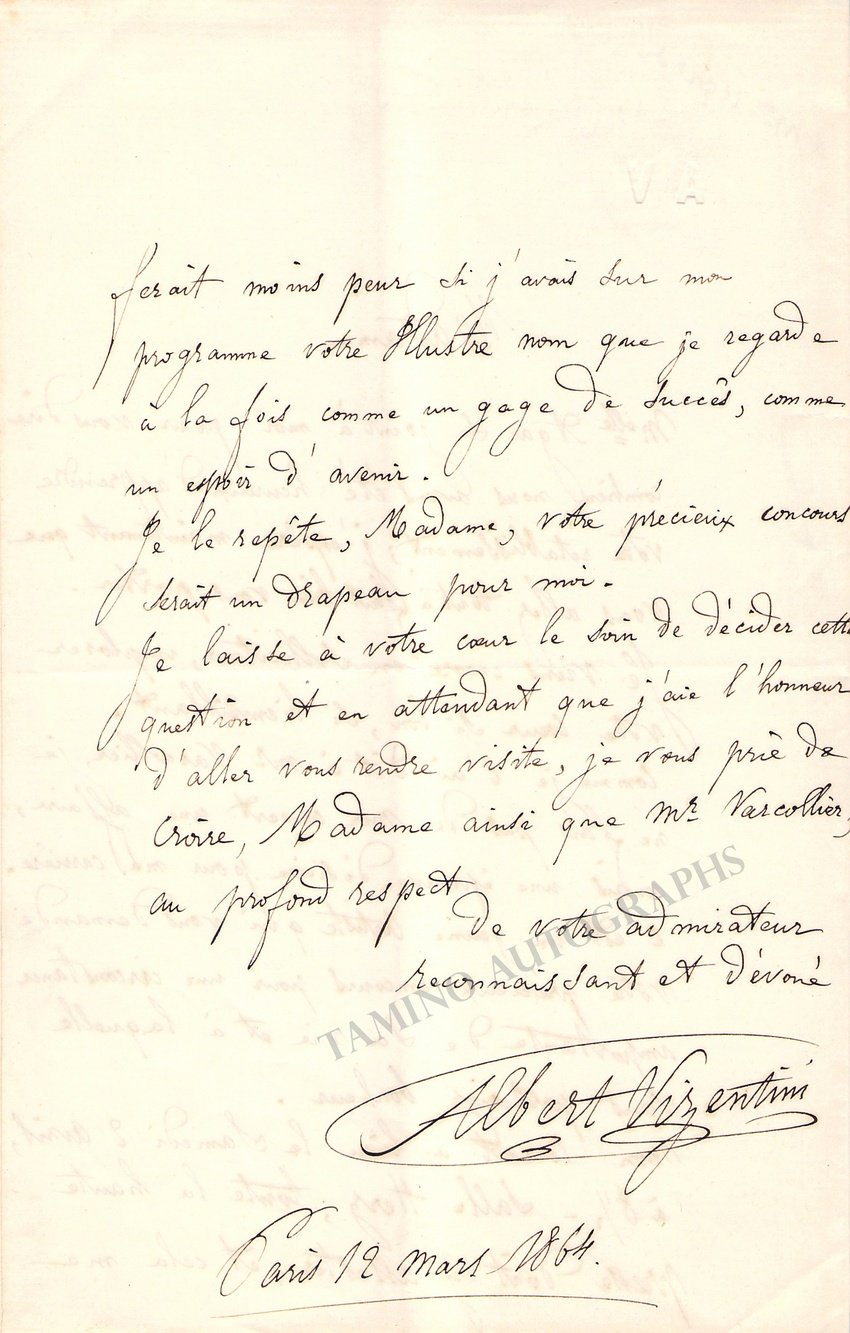 A V
ferait moins peur si j'avais sur mon
programme votre Illustre nom que je regarde
à la fois comme un gage de succès, comme
un espoir d'avenir.
Je le repête, Madame, votre précieux concours
serait un drapeau pour moi.
Je laisse à votre cœur le soin de décider cette
question et en attendant que j'aie l'honneur
d'aller vous rendre visite, je vous prie de
croire, Madame ainsi que Mr Varcollier,
au profond respect
de votre admirateur
reconnaissant et dévoué
Albert Vizentini
Paris 12 mars 1864.
TAMINO AUTOGRAPHS